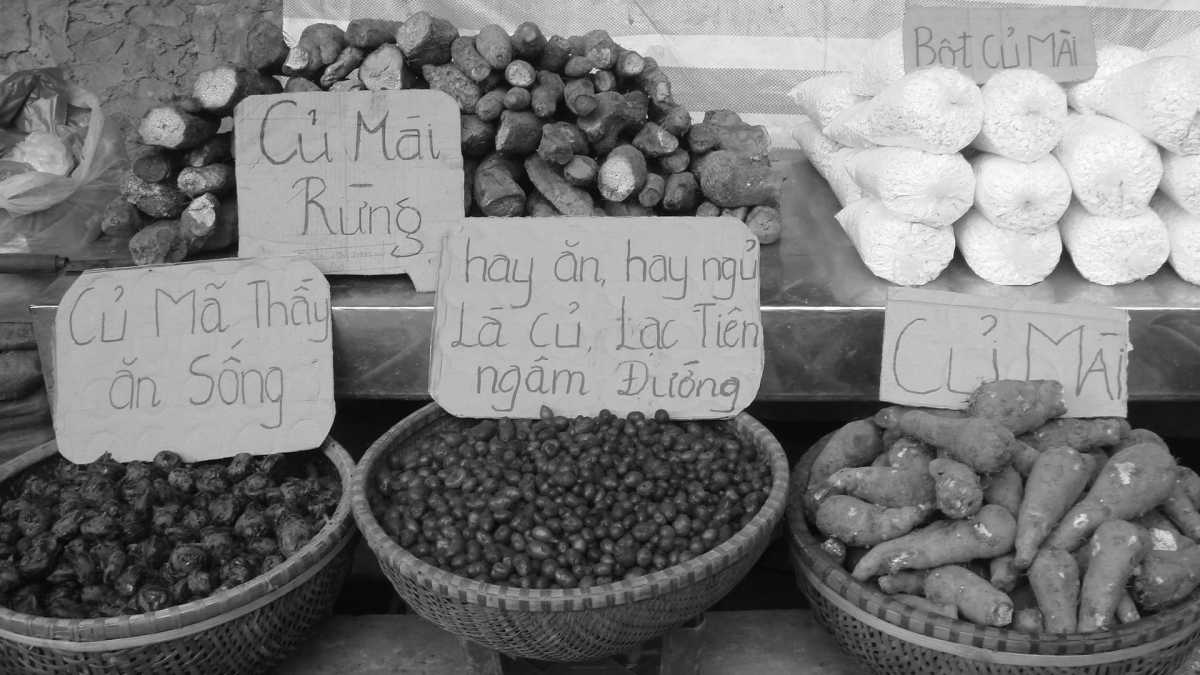 Bột Củ Mài
Củ Mái
Rừng
hay ăn, hay ngủ
Lá củ, Lạc Tiên
ngâm Đường
Củ Mã Thầy
ăn Sống
Củ Mài